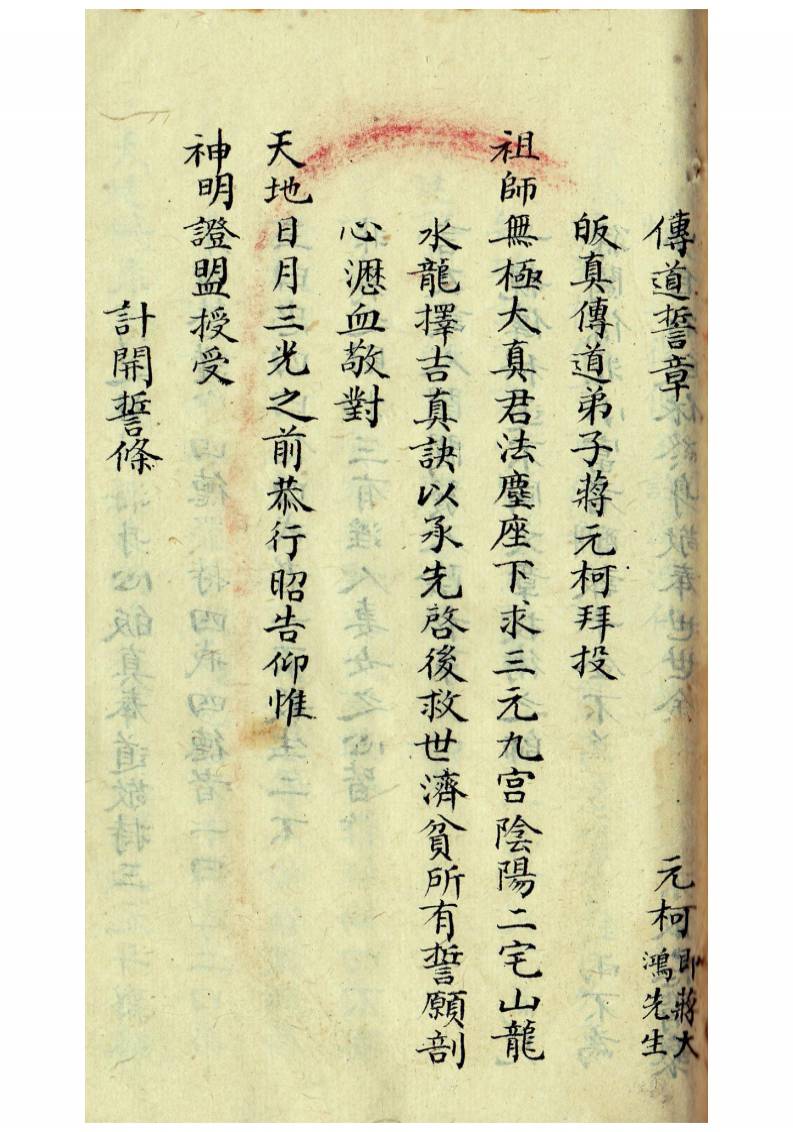 傳道誓章
元柯即蔣大
鴻先生
皈真傳道弟子蔣元柯拜投
祖師無極大真君法塵座下求三元九宫陰陽二宅山龍
水龍擇吉真訣以承先啓後救世濟貧所有誓願剖
心瀝血敬對
天地日月三光之前恭行昭告仰惟
神明證盟授受
計開誓條